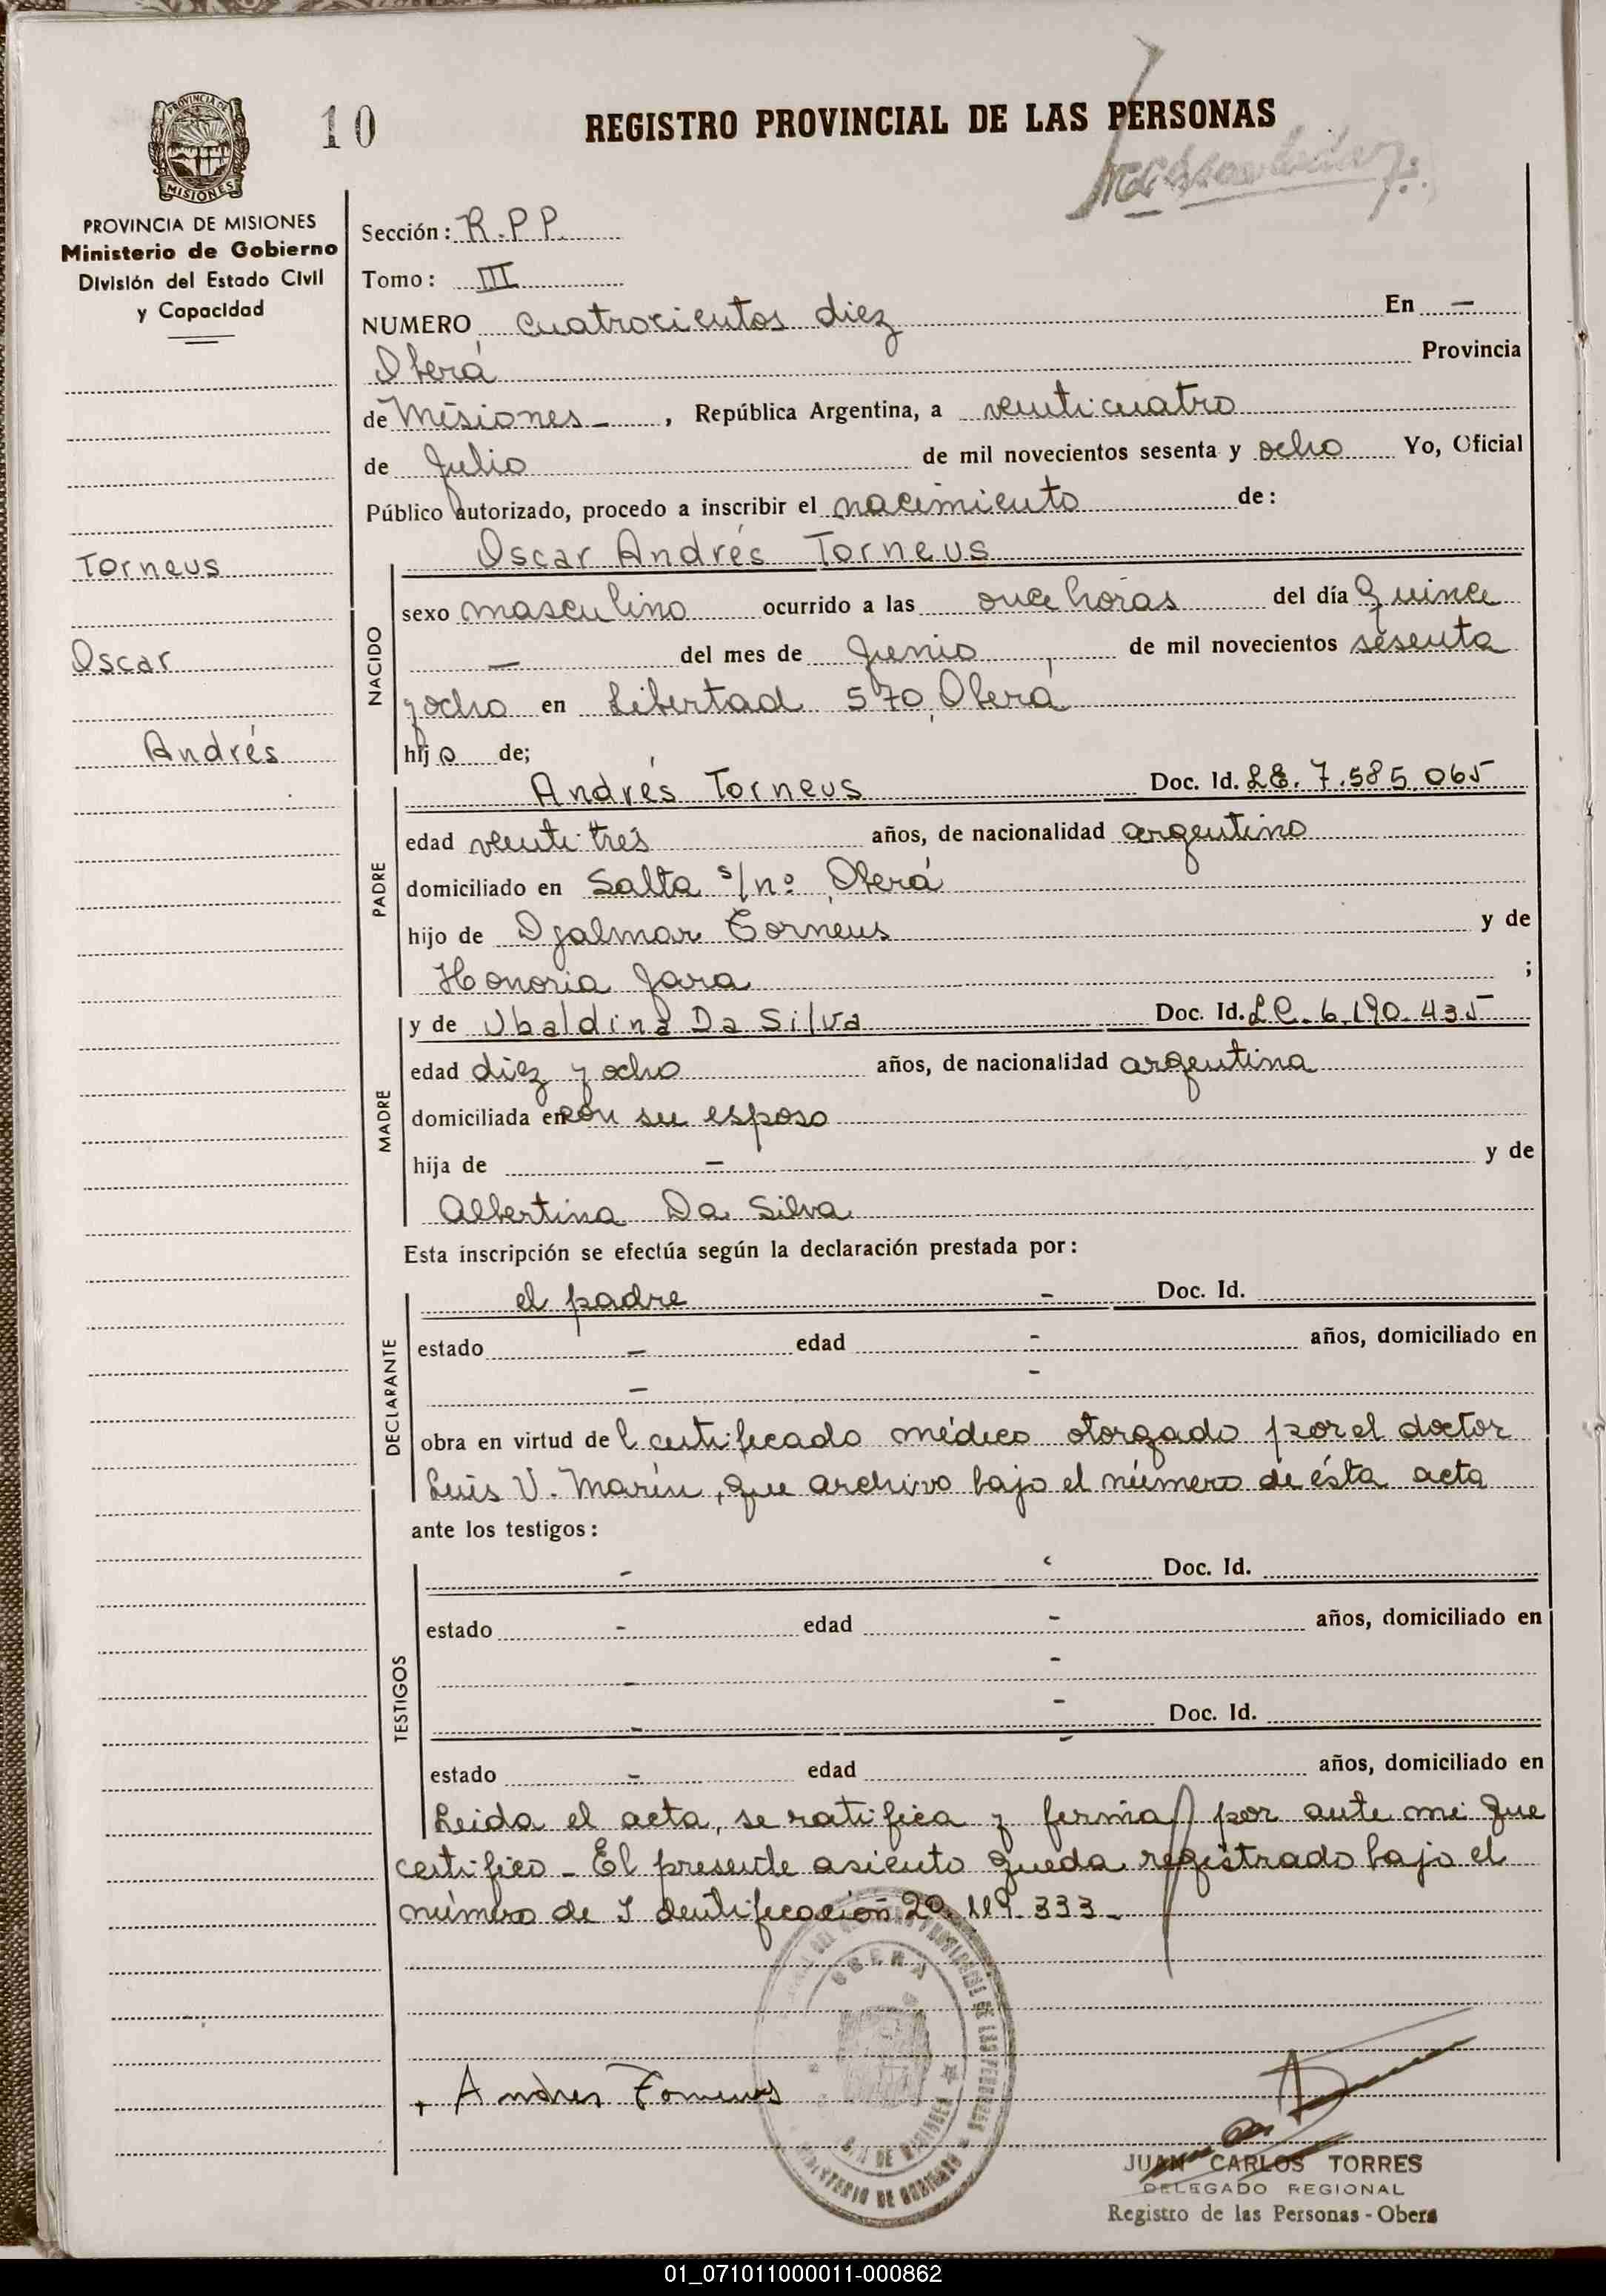 10
REGISTRO PROVINCIAL DE LAS PERSONAS
PROVINCIA DE MISIONES
PROVINCIA DE MISIONES
Ministerio de Gobierno
División del Estado Civil
y Capacidad
Sección: R.P.P.
Tomo: III
NUMERO cuatrocientos diez En —
Oberá Provincia
de Misiones - , República Argentina, a veinticuatro
de Julio de mil novecientos sesenta y ocho Yo, Oficial
Público autorizado, procedo a inscribir el nacimiento de:
Oscar Andrés Torneus
Torneus
Oscar
Andrés
NACIDO
sexo masculino ocurrido a las once horas del día quince
— del mes de Junio, de mil novecientos sesenta
y ocho en Libertad 570, Oberá
hijo de;
PADRE
Andrés Torneus Doc. Id. LE. 7.585.065
edad veintitrés años, de nacionalidad argentino
domiciliado en Salta s/nº, Oberá
hijo de Djalmar Torneus y de
Honoria Jara ;
MADRE
y de Ubaldina Da Silva Doc. Id. LC. 6.190.435
edad diez y ocho años, de nacionalidad argentina
domiciliada en con su esposo
hija de — y de
Albertina Da Silva
Esta inscripción se efectúa según la declaración prestada por:
DECLARANTE
el padre - Doc. Id.
estado — edad - años, domiciliado en
— -
obra en virtud del certificado médico otorgado por el doctor
Luis V. Marin, que archivo bajo el número de ésta acta
ante los testigos:
TESTIGOS
- Doc. Id.
estado - edad - años, domiciliado en
- -
- - Doc. Id.
estado - edad - años, domiciliado en
Leida el acta, se ratifica y firma por ante mi que
certifico - El presente asiento queda registrado bajo el
número de Identificación 20.119.333 -
OBERA
Andres Torneus
JUAN CARLOS TORRES
DELEGADO REGIONAL
Registro de las Personas - Obera
01_071011000011-000862